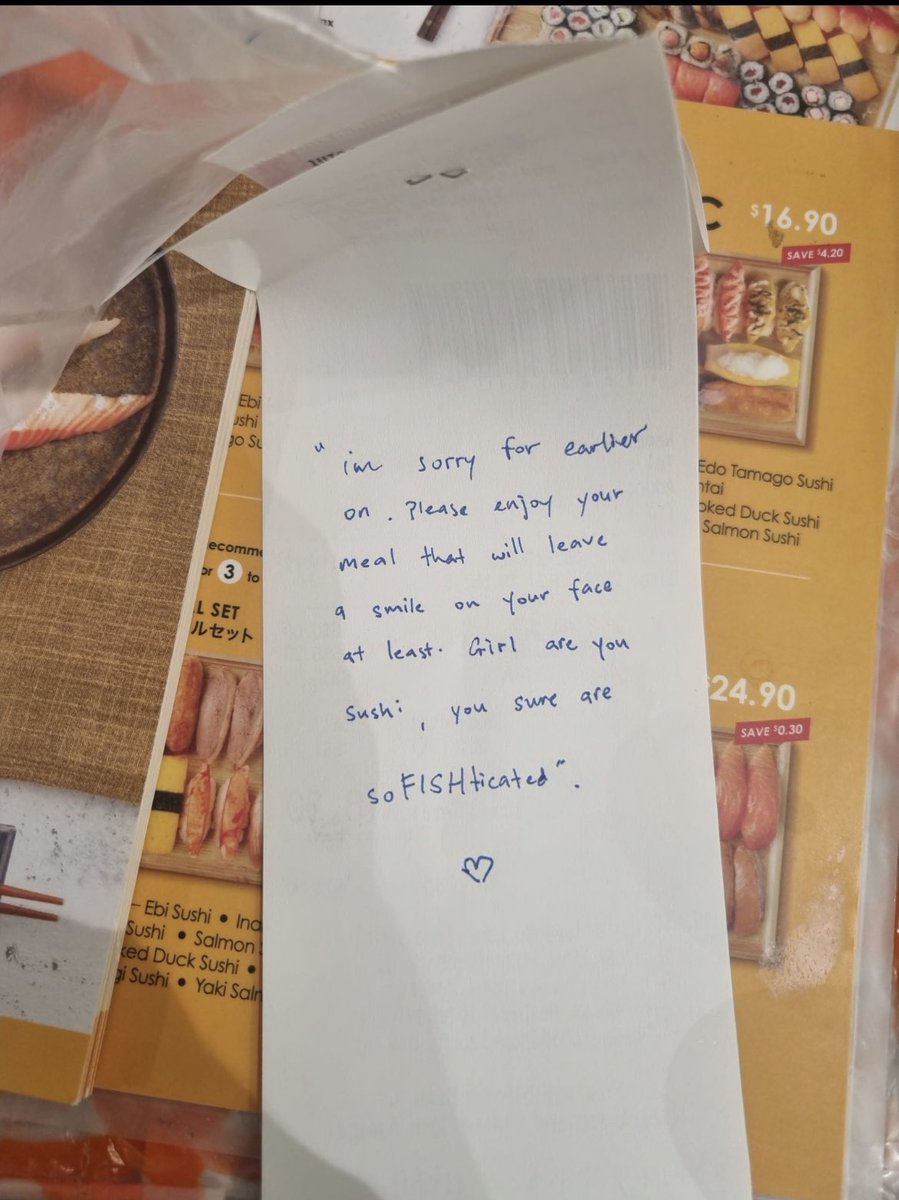 C $16.90
SAVE $4.20
Edo Tamago Sushi
Duck Sushi
Salmon Sushi
3
SET
ルセット
$24.90
SAVE $0.30
Ebi Sushi •
Sushi • Salmon
Duck Sushi •
Sushi • Yaki
"im sorry for earlier
on. Please enjoy your
meal that will leave
a smile on your face
at least. Girl are you
sushi, you sure are
soFISHticated".